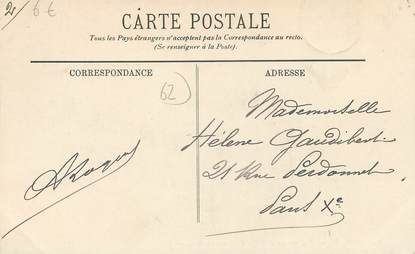 2/ 6€
CARTE POSTALE
Tous les Pays étrangers n'acceptent pas la Correspondance au recto.
(Se renseigner à la Poste).
CORRESPONDANCE
62
ADRESSE
Mademoiselle
Hélène Gaudibert
21 Rue Perdonnet
Paris Xe